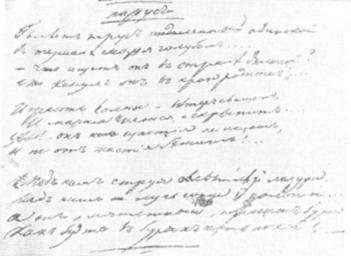 парусъ
Бѣлѣетъ парусъ одинокой
Въ туманѣ моря голубомъ...
– Что ищетъ онъ въ странѣ далекой?
Что кинулъ онъ въ краю родномъ?...
Играютъ волны
И мачта гнется и скрыпитъ...
Увы! онъ счастія не ищетъ
И не отъ счастія бѣжитъ!...
Подъ нимъ струя свѣтлѣй лазури
Надъ нимъ лучь солнца золотой...
А онъ, мятежный, проситъ бури
Какъ будто въ буряхъ есть покой!